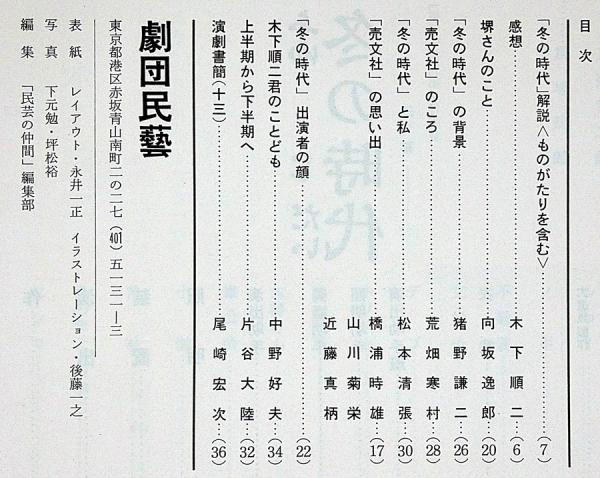 目次
「冬の時代」解説〈ものがたりを含む〉……(7)
感想……木下順二…(6)
堺さんのこと……向坂逸郎…(20)
「冬の時代」の背景……猪野謙二…(26)
「売文社」のころ……荒畑寒村…(28)
「冬の時代」と私……松本清張…(30)
「売文社」の思い出……橋浦時雄…(17)
山川菊栄
近藤真柄
「冬の時代」出演者の顔……(22)
木下順二君のことども……中野好夫…(34)
上半期から下半期へ……片谷大陸…(32)
演劇書簡(十三)……尾崎宏次…(36)
劇団民藝
東京都港区赤坂青山南町二の二七(401)五一三一―三
表紙 レイアウト・永井一正 イラストレーション・後藤一之
写真 下元勉・坪松裕
編集 「民芸の仲間」編集部